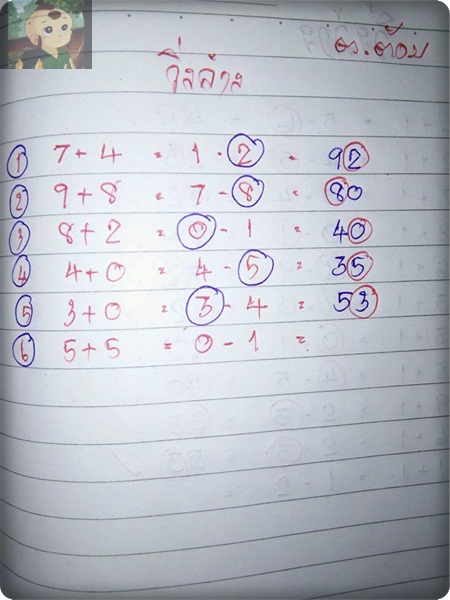 อ.ต้อม
วิ่งล่าง
1 7+4 = 1 - 2 = 92
2 9+8 = 7 - 8 = 80
3 8+2 = 0 - 1 = 40
4 4+0 = 4 - 5 = 35
5 3+0 = 3 - 4 = 53
6 5+5 = 0 - 1 =